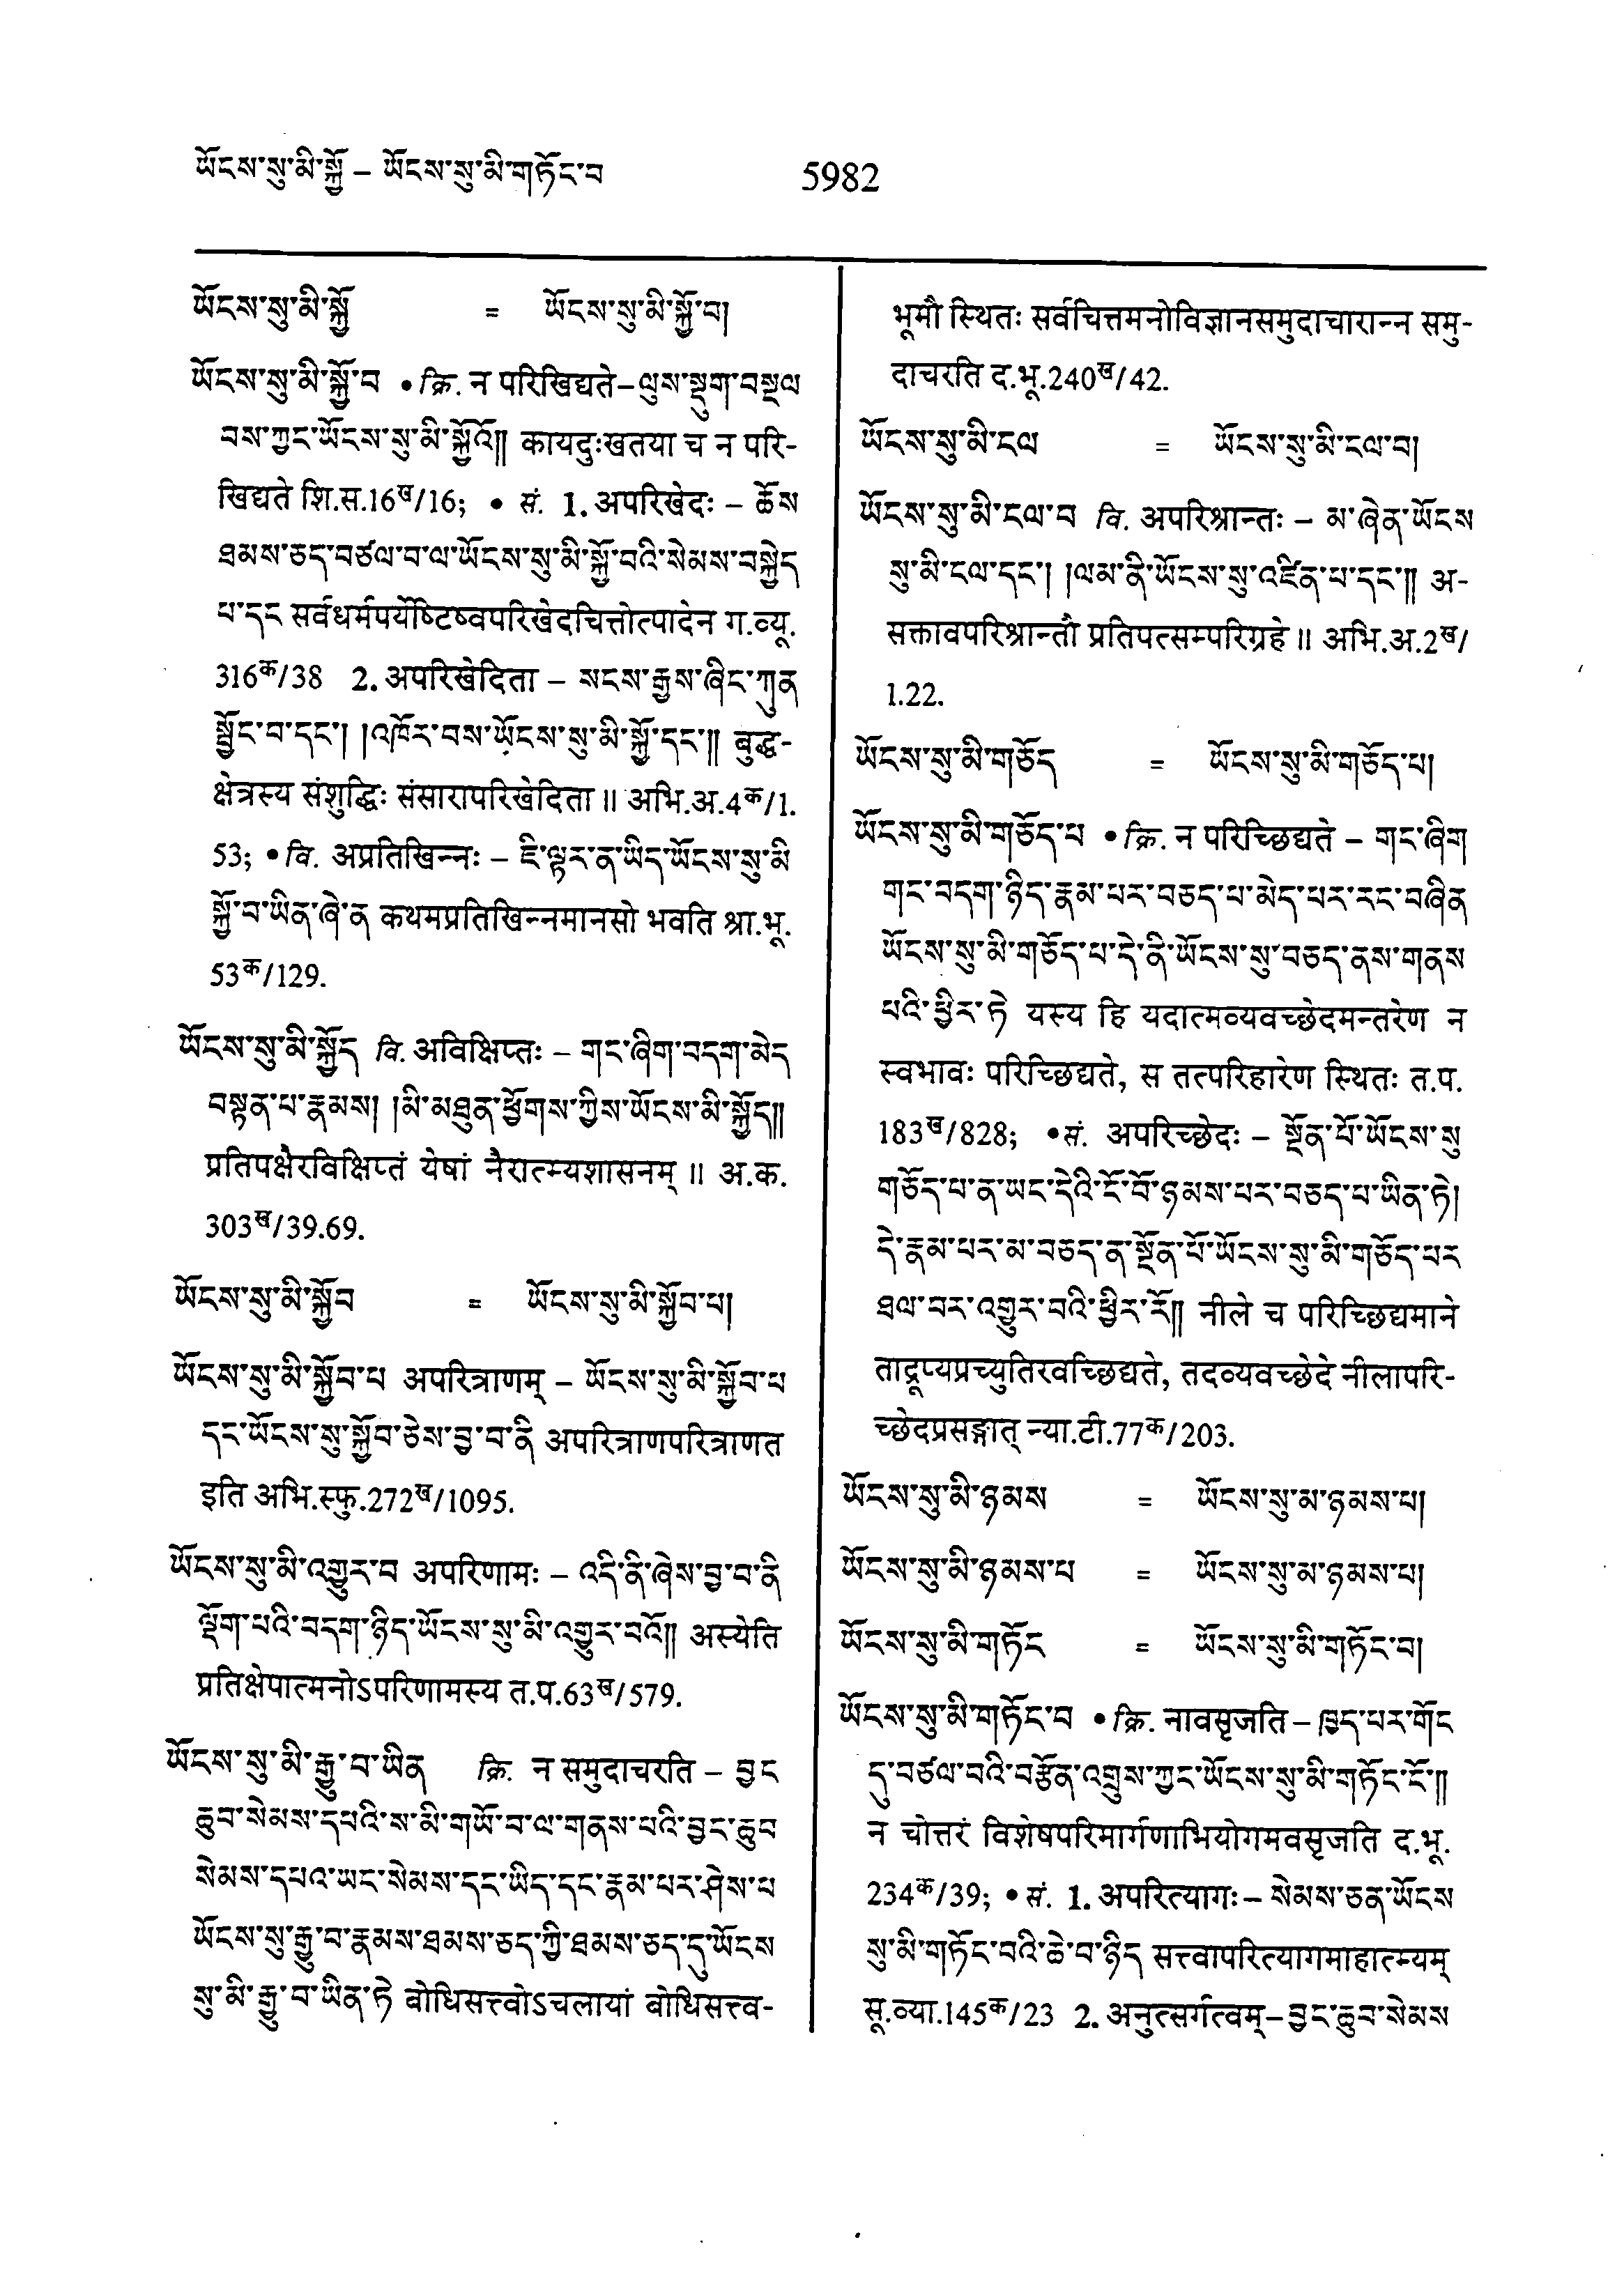 ཡོངས་སུ་མི་སྐྱོ – ཡོངས་སུ་མི་གཏོང་བ 5982
ཡོངས་སུ་མི་སྐྱོ = ཡོངས་སུ་མི་སྐྱོ་བ།
ཡོངས་སུ་མི་སྐྱོ་བ • क्रि. न परिखिद्यते – ལུས་སྡུག་བསྔལ
བས་ཀྱང་ཡོངས་སུ་མི་སྐྱོའོ༎ कायदुःखतया च न परि-
खिद्यते शि.स.16ख/16; • सं. 1. अपरिखेदः – ཆོས
ཐམས་ཅད་བཙལ་བ་ལ་ཡོངས་སུ་མི་སྐྱོ་བའི་སེམས་བསྐྱེད
པ་དང सर्वधर्मपर्येष्टिष्वपरिखेदचित्तोत्पादेन ग.व्यू.
316क/38 2. अपरिखेदिता – སངས་རྒྱས་ཞིང་ཀུན
སྦྱོང་བ་དང་། །འཁོར་བས་ཡོངས་སུ་མི་སྐྱོ་དང་༎ बुद्ध-
क्षेत्रस्य संशुद्धिः संसारापरिखेदिता ॥ अभि.अ.4क/1.
53; • वि. अप्रतिखिन्नः – ཇི་ལྟར་ན་ཡིད་ཡོངས་སུ་མི
སྐྱོ་བ་ཡིན་ཞེ་ན कथमप्रतिखिन्नमानसो भवति श्रा.भू.
53क/129.
ཡོངས་སུ་མི་སྐྱོད वि. अविक्षिप्तः – གང་ཞིག་བདག་མེད
བསྟན་པ་རྣམས། །མི་མཐུན་ཕྱོགས་ཀྱིས་ཡོངས་མི་སྐྱོད༎
प्रतिपक्षैरविक्षिप्तं येषां नैरात्म्यशासनम् ॥ अ.क.
303ख/39.69.
ཡོངས་སུ་མི་སྐྱོབ = ཡོངས་སུ་མི་སྐྱོབ་པ།
ཡོངས་སུ་མི་སྐྱོབ་པ अपरित्राणम् – ཡོངས་སུ་མི་སྐྱོབ་པ
དང་ཡོངས་སུ་སྐྱོབ་ཅེས་བྱ་བ་ནི अपरित्राणपरित्राणत
इति अभि.स्फु.272ख/1095.
ཡོངས་སུ་མི་འགྱུར་བ अपरिणामः – འདི་ནི་ཞེས་བྱ་བ་ནི
ལྡོག་པའི་བདག་ཉིད་ཡོངས་སུ་མི་འགྱུར་བའོ༎ अस्येति
प्रतिक्षेपात्मनोऽपरिणामस्य त.प.63ख/579.
ཡོངས་སུ་མི་རྒྱུ་བ་ཡིན क्रि. न समुदाचरति – བྱང
ཆུབ་སེམས་དཔའི་ས་མི་གཡོ་བ་ལ་གནས་པའི་བྱང་ཆུབ
སེམས་དཔའ་ཡང་སེམས་དང་ཡིད་དང་རྣམ་པར་ཤེས་པ
ཡོངས་སུ་རྒྱུ་བ་རྣམས་ཐམས་ཅད་ཀྱི་ཐམས་ཅད་དུ་ཡོངས
སུ་མི་རྒྱུ་བ་ཡིན་ཏེ बोधिसत्त्वोऽचलायां बोधिसत्त्व-
भूमौ स्थितः सर्वचित्तमनोविज्ञानसमुदाचारान्न समु-
दाचरति द.भू.240ख/42.
ཡོངས་སུ་མི་ངལ = ཡོངས་སུ་མི་ངལ་བ།
ཡོངས་སུ་མི་ངལ་བ वि. अपरिश्रान्तः – མ་ཞེན་ཡོངས
སུ་མི་ངལ་དང་། །ལམ་ནི་ཡོངས་སུ་འཛིན་པ་དང་༎ अ-
सक्तावपरिश्रान्तौ प्रतिपत्सम्परिग्रहे ॥ अभि.अ.2ख/
1.22.
ཡོངས་སུ་མི་གཅོད = ཡོངས་སུ་མི་གཅོད་པ།
ཡོངས་སུ་མི་གཅོད་པ • क्रि. न परिच्छिद्यते – གང་ཞིག
གང་བདག་ཉིད་རྣམ་པར་བཅད་པ་མེད་པར་རང་བཞིན
ཡོངས་སུ་མི་གཅོད་པ་དེ་ནི་ཡོངས་སུ་བཅད་ནས་གནས
པའི་ཕྱིར་ཏེ यस्य हि यदात्मव्यवच्छेदमन्तरेण न
स्वभावः परिच्छिद्यते, स तत्परिहारेण स्थितः त.प.
183ख/828; • सं. अपरिच्छेदः – སྔོན་པོ་ཡོངས་སུ
གཅོད་པ་ན་ཡང་དེའི་ངོ་བོ་ཉམས་པར་བཅད་པ་ཡིན་ཏེ།
དེ་རྣམ་པར་མ་བཅད་ན་སྔོན་པོ་ཡོངས་སུ་མི་གཅོད་པར
ཐལ་བར་འགྱུར་བའི་ཕྱིར་རོ༎ नीले च परिच्छिद्यमाने
ताद्रूप्यप्रच्युतिरवच्छिद्यते, तदव्यवच्छेदे नीलापरि-
च्छेदप्रसङ्गात् न्या.टी.77क/203.
ཡོངས་སུ་མི་ཉམས = ཡོངས་སུ་མ་ཉམས་པ།
ཡོངས་སུ་མི་ཉམས་པ = ཡོངས་སུ་མ་ཉམས་པ།
ཡོངས་སུ་མི་གཏོང = ཡོངས་སུ་མི་གཏོང་བ།
ཡོངས་སུ་མི་གཏོང་བ • क्रि. नावसृजति – ཁྱད་པར་གོང
དུ་བཙལ་བའི་བརྩོན་འགྲུས་ཀྱང་ཡོངས་སུ་མི་གཏོང་ངོ་༎
न चोत्तरं विशेषपरिमार्गणाभियोगमवसृजति द.भू.
234क/39; • सं. 1. अपरित्यागः – སེམས་ཅན་ཡོངས
སུ་མི་གཏོང་བའི་ཆེ་བ་ཉིད सत्त्वापरित्यागमाहात्म्यम्
सू.व्या.145क/23 2. अनुत्सर्गत्वम् – བྱང་ཆུབ་སེམས